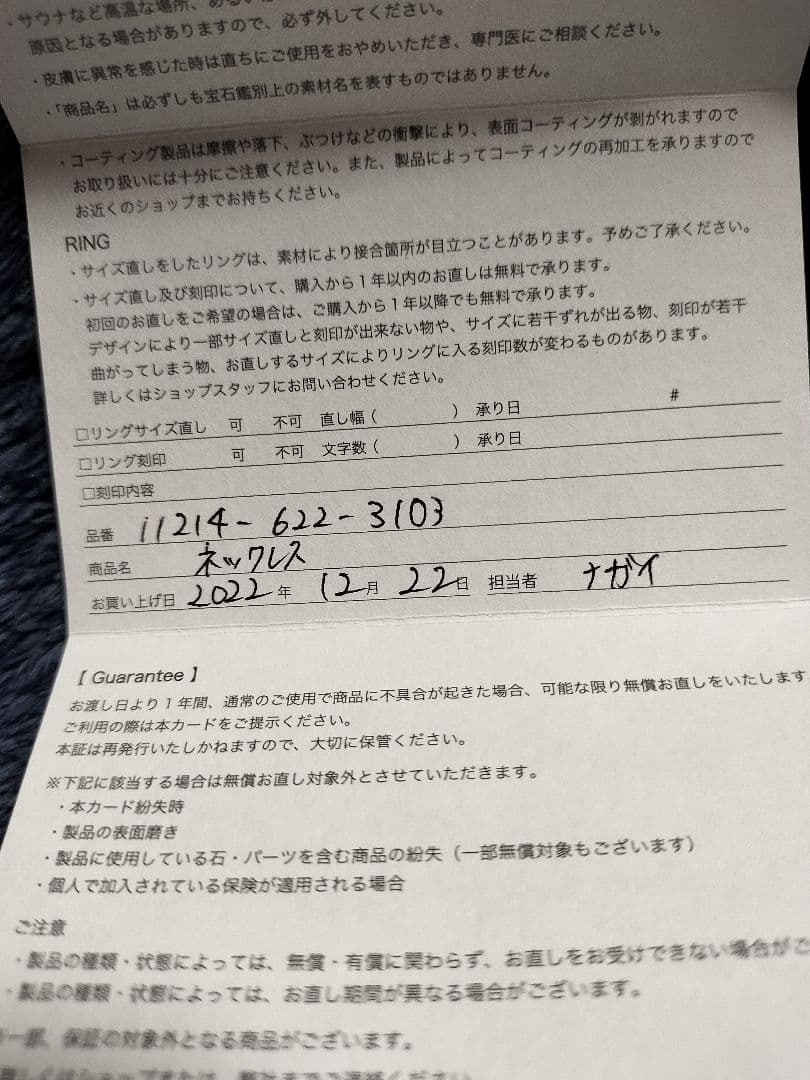 ・サウナなど高温な場所、ある
原因となる場合がありますので、必ず外してください。
・皮膚に異常を感じた時は直ちにご使用をおやめいただき、専門医にご相談ください。
・「商品名」は必ずしも宝石鑑別上の素材名を表すものではありません。
・コーティング製品は摩擦や落下、ぶつけなどの衝撃により、表面コーティングが剥がれますので
お取り扱いには十分にご注意ください。また、製品によってコーティングの再加工を承りますので
お近くのショップまでお持ちください。
RING
・サイズ直しをしたリングは、素材により接合箇所が目立つことがあります。予めご了承ください。
・サイズ直し及び刻印について、購入から1年以内のお直しは無料で承ります。
初回のお直しをご希望の場合は、ご購入から1年以降でも無料で承ります。
デザインにより一部サイズ直しと刻印が出来ない物や、サイズに若干ずれが出る物、刻印が若干
曲がってしまう物、お直しするサイズによりリングに入る刻印数が変わるものがあります。
詳しくはショップスタッフにお問い合わせください。
□リングサイズ直し 可 不可 直し幅（ ） 承り日 #
□リング刻印 可 不可 文字数（ ） 承り日
□刻印内容
品番 11214-622-3103
商品名 ネックレス
お買い上げ日 2022年 12月 22日 担当者 ナガイ
【 Guarantee 】
お渡し日より1年間、通常のご使用で商品に不具合が起きた場合、可能な限り無償お直しをいたします
ご利用の際は本カードをご提示ください。
本証は再発行いたしかねますので、大切に保管ください。
※下記に該当する場合は無償お直し対象外とさせていただきます。
・本カード紛失時
・製品の表面磨き
・製品に使用している石・パーツを含む商品の紛失（一部無償対象もございます）
・個人で加入されている保険が適用される場合
ご注意
・製品の種類・状態によっては、無償・有償に関わらず、お直しをお受けできない場合がご
・製品の種類・状態によっては、お直し期間が異なる場合がございます。
一部、保証の対象外となる商品がございます。